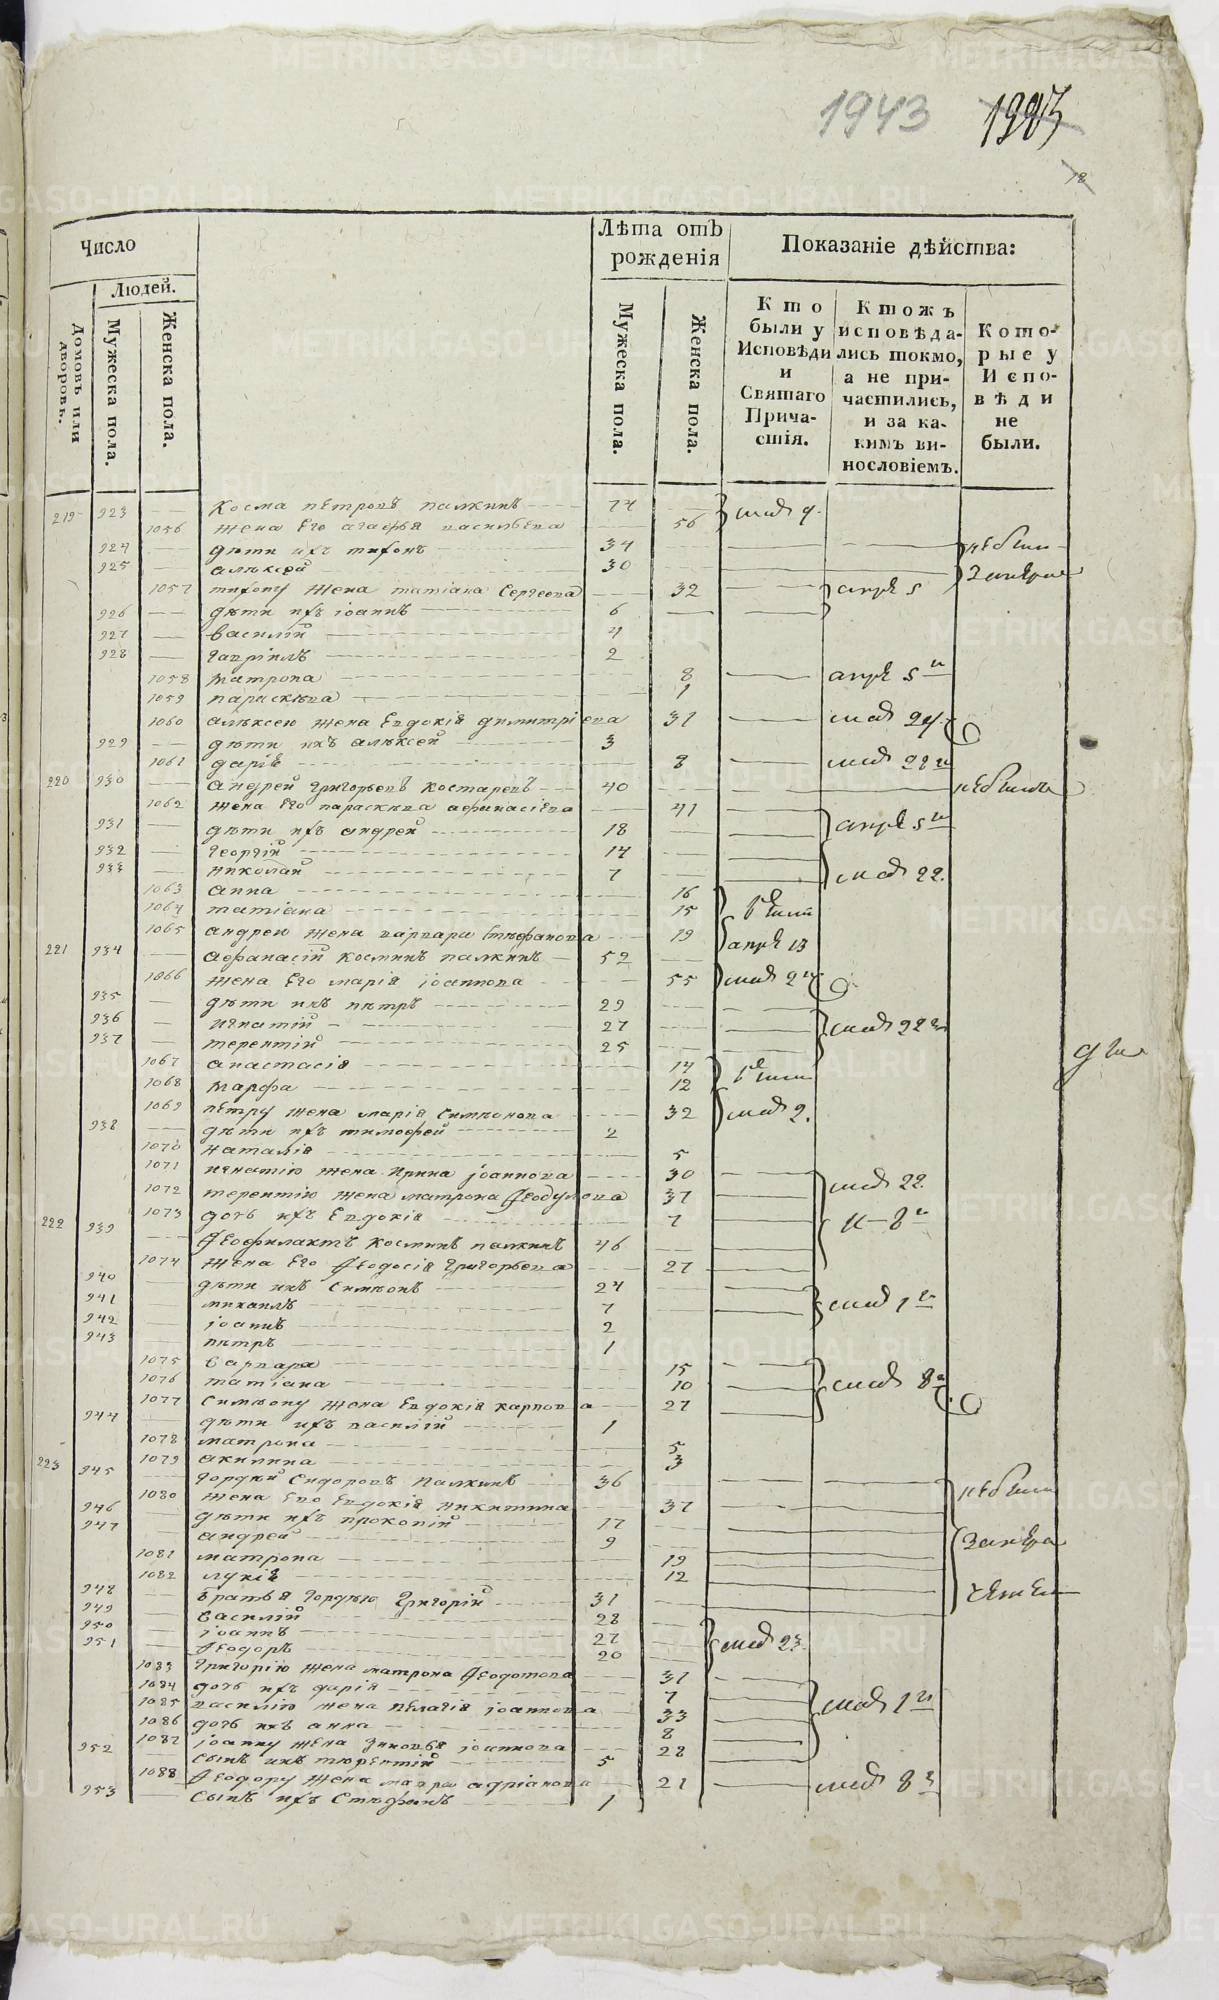 1943 1993
18
Число
Людей.
Домовъ или дворовъ.
Мужеска пола.
Женска пола.
Лѣта отъ рожденія
Мужеска пола.
Женска пола.
Показаніе дѣйства:
Кто были у Исповѣди и Святаго Причастія.
Ктожъ исповѣдались токмо, а не причастились, и за какимъ винословіемъ.
Которые у Исповѣди не были.
219 923 Косма пѣтровъ палкинъ 74
1056 жена Его агафья васильева 56 маія 9.
924 дѣти ихъ тифонъ 34 небыли
925 алѣксѣй 30
1057 тифону жена татіана Сергеева 32 апрѣ 5
926 дѣти ихъ іоаннъ 6
927 василій 4
928 гавріилъ 2
1058 матрона 8 апрѣ 5
1059 параскѣва 1
1060 алѣксею жена Евдокія димитріева 31 маія 24.
929 дѣти ихъ алѣксей 3
1061 даріѣ 8 маія 22
220 930 андрей григорьевъ костаревъ 40 нЕбылъ
1062 жена Его параскѣва афанасіева 41
931 дѣти ихъ андрей 18 апрѣ 5
932 георгій 14
933 николай 7 маія 22.
1063 анна 16
1064 татіана 15
1065 андрею жена варвара Стефанова 19 апрѣ 13
221 934 афанасій косминъ палкинъ 52
1066 жена Его марія іоаннова 55 маія 2
935 дѣти ихъ пѣтръ 29
936 игнатій 27 маія 22
937 терентій 25
1067 анастасія 14
1068 марфа 12
1069 пѣтру жена марія Симеонова 32 маія 2.
938 дѣти ихъ тимофей 2
1070 наталія 5
1071 игнатію жена ирина іоаннова 30 маія 22.
1072 терентію жена матрона Ѳеодулова 37
1073 дочь ихъ Евдокія 7
222 939 Ѳеофилактъ косминъ палкинъ 46
1074 жена Его Ѳеодосія григорьева 27
940 дѣти ихъ Симѣонъ 24
941 михаилъ 7 маія 1
942 іоаннъ 2
943 пѣтръ 1
1075 варвара 15
1076 татіана 10 маія 8
1077 Симѣону жена Евдокія карпова 27
944 дѣти ихъ василій 1
1078 матрона 5
1079 акилина 3
223 945 гордѣй Сидоровъ Палкинъ 36 нЕбыли
1080 жена Его Евдокія никитина 37
946 дѣти ихъ прокопій 17
947 андрей 9
1081 матрона 19
1082 лукіѣ 12
948 братья гордѣю григорій 31
949 василій 28
950 іоаннъ 27 маія 23.
951 Ѳеодоръ 20
1083 григорію жена матрона Ѳеодотова 31
1084 дочь ихъ дарія 7
1085 василію жена пелагія іоаннова 33 маія 1
1086 дочь ихъ анна 8
1087 іоанну жена зиновья іоаннова 28
952 сынъ ихъ терентій 5
1088 Ѳеодору жена мавра адріанова 21 маія 8
953 сынъ ихъ Стѣфанъ 1
METRIKI.GASO-URAL.RU